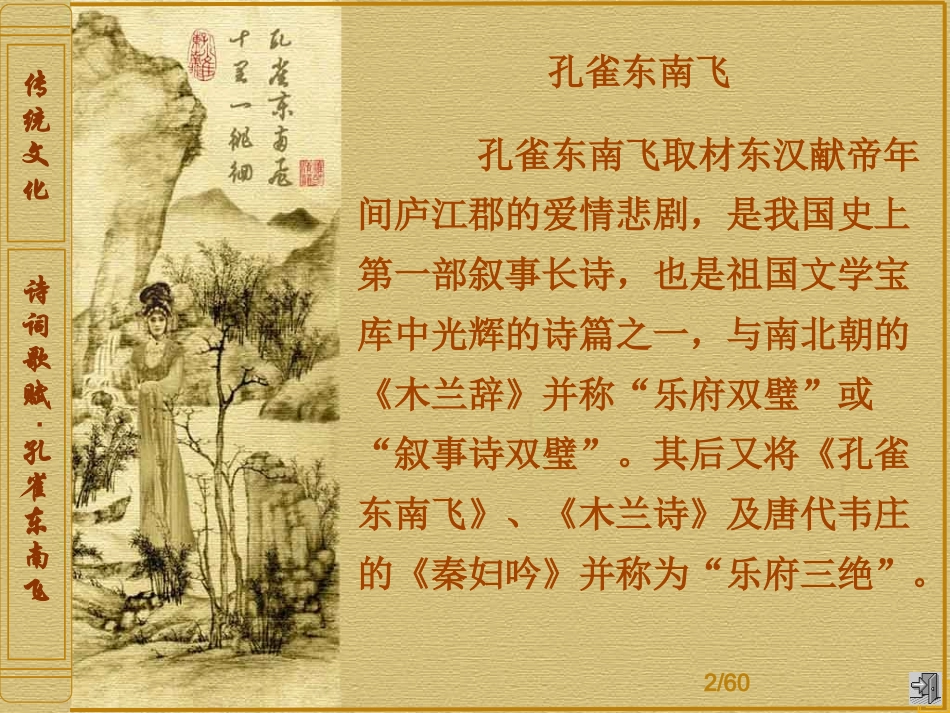 传统文化
诗词歌赋·孔雀东南飞
孔雀东南飞
十里一徘徊
孔雀东南飞
孔雀东南飞取材东汉献帝年
间庐江郡的爱情悲剧，是我国史上
第一部叙事长诗，也是祖国文学宝
库中光辉的诗篇之一，与南北朝的
《木兰辞》并称“乐府双璧”或
“叙事诗双璧”。其后又将《孔雀
东南飞》、《木兰诗》及唐代韦庄
的《秦妇吟》并称为“乐府三绝”。
2/60